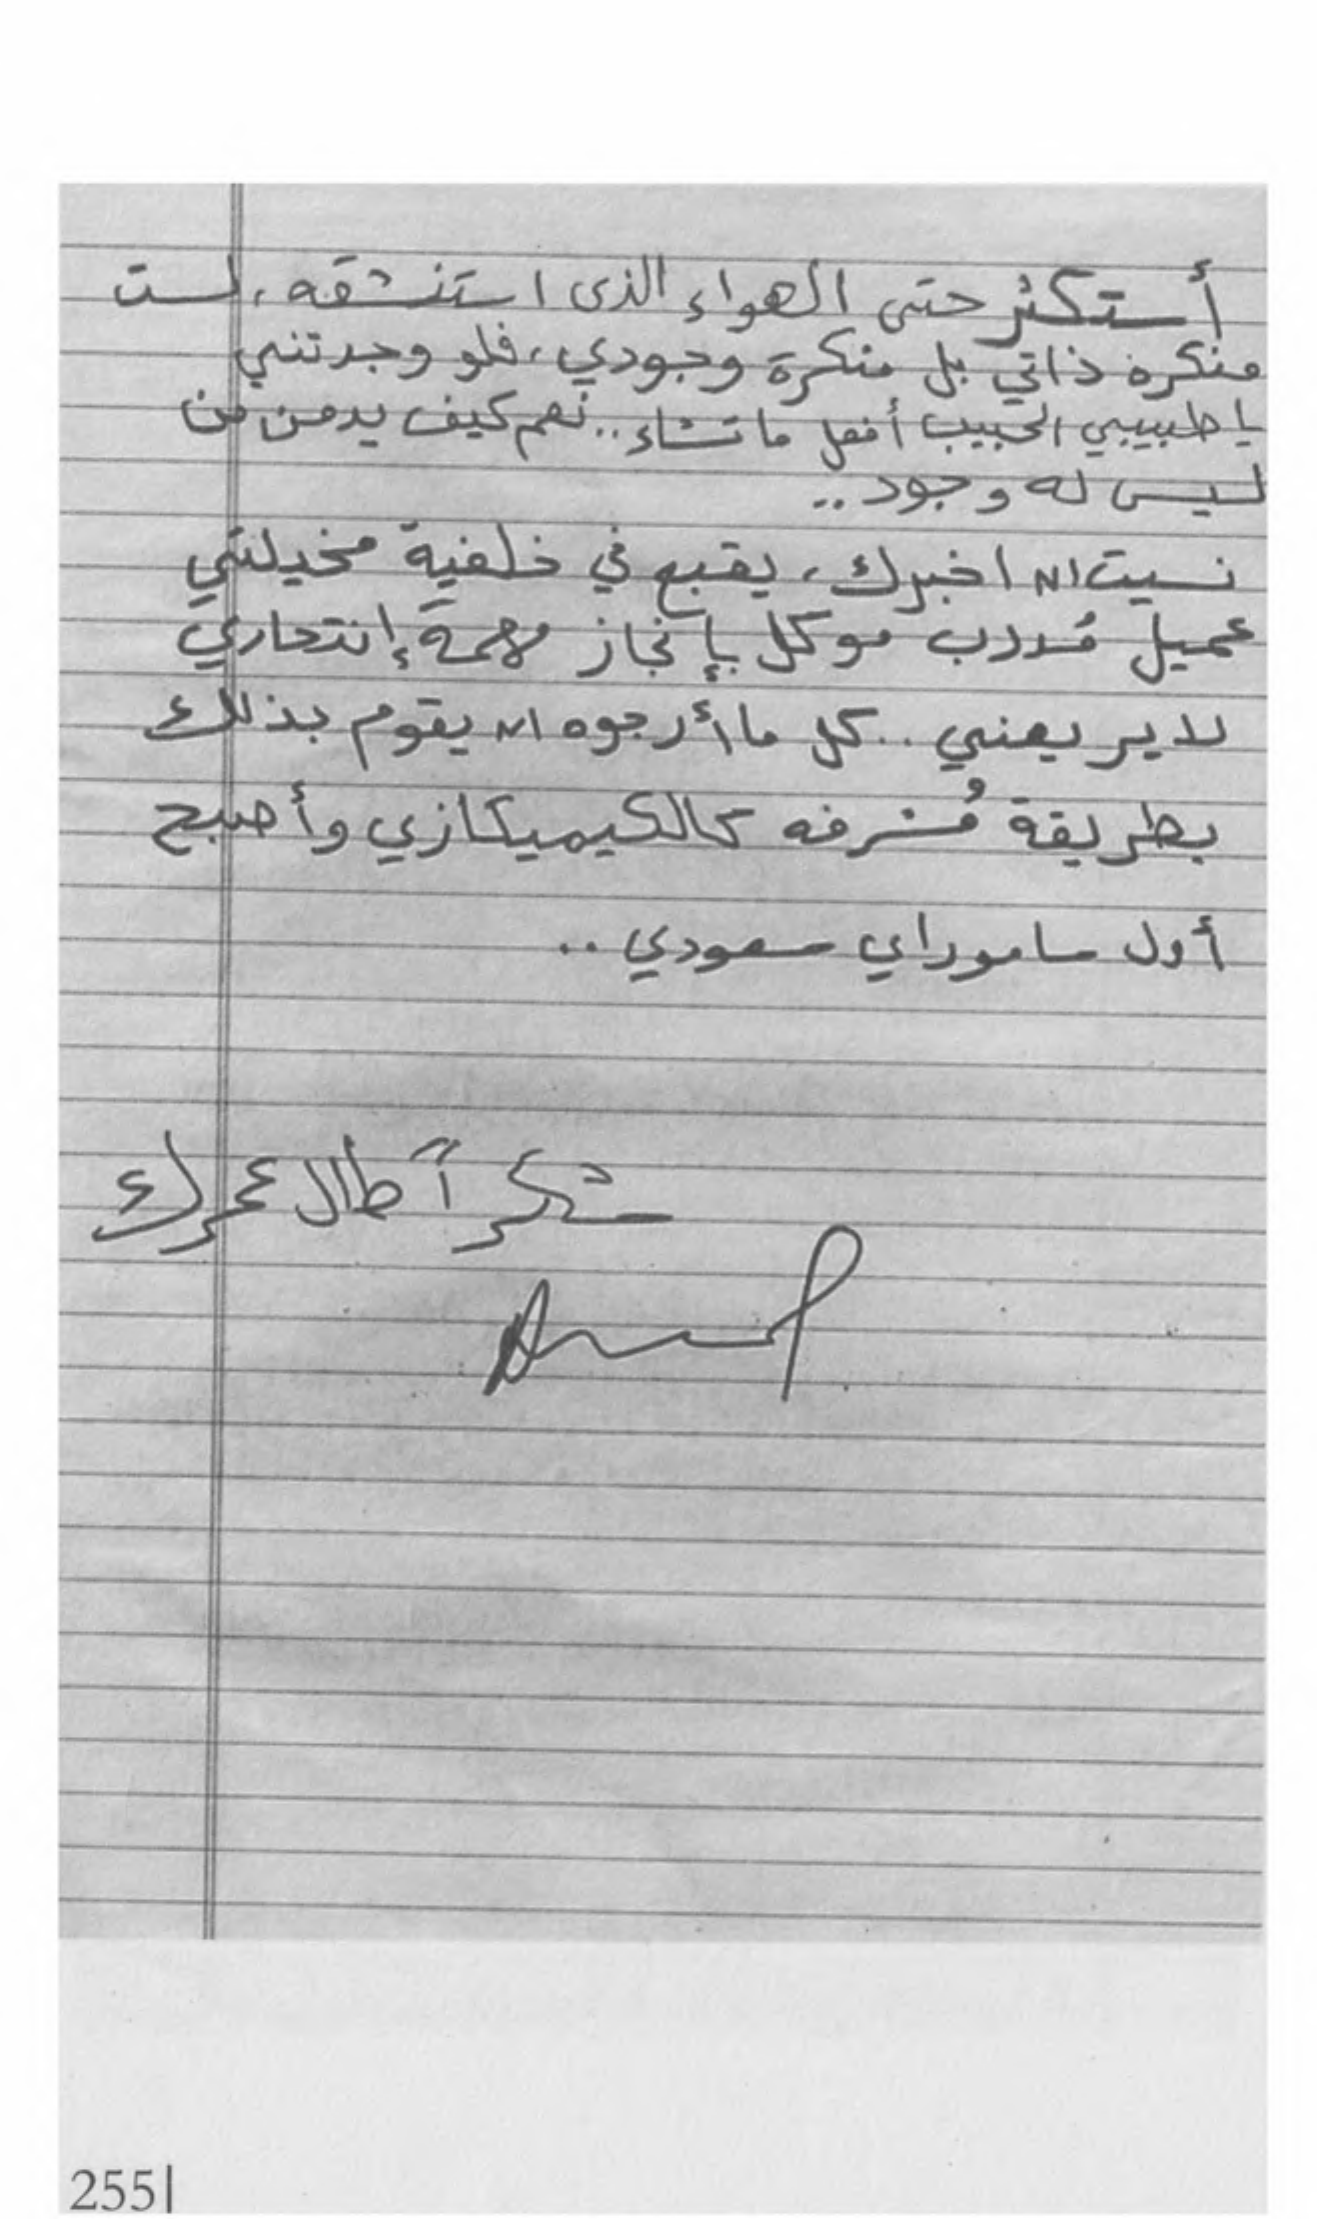 أستكثر حتى الهواء الذى استنشقه، لست
منكرة ذاتي بل منكرة وجودي، فلو وجدتني
يا طبيبي الحبيب أفعل ما تشاء.. نعم كيف يدمن من
ليس له وجود..
نسيت ان اخبرك، يقبع في خلفية مخيلتي
عميل مُدرب موكل بإنجاز مهمة إنتحاري
لا يريعني.. كل ما أرجوه ان يقوم بذلك
بطريقة مُشرفه كالكيميكازي وأصبح
أول ساموراي سعودي..
شكراً طال عمرك
255|